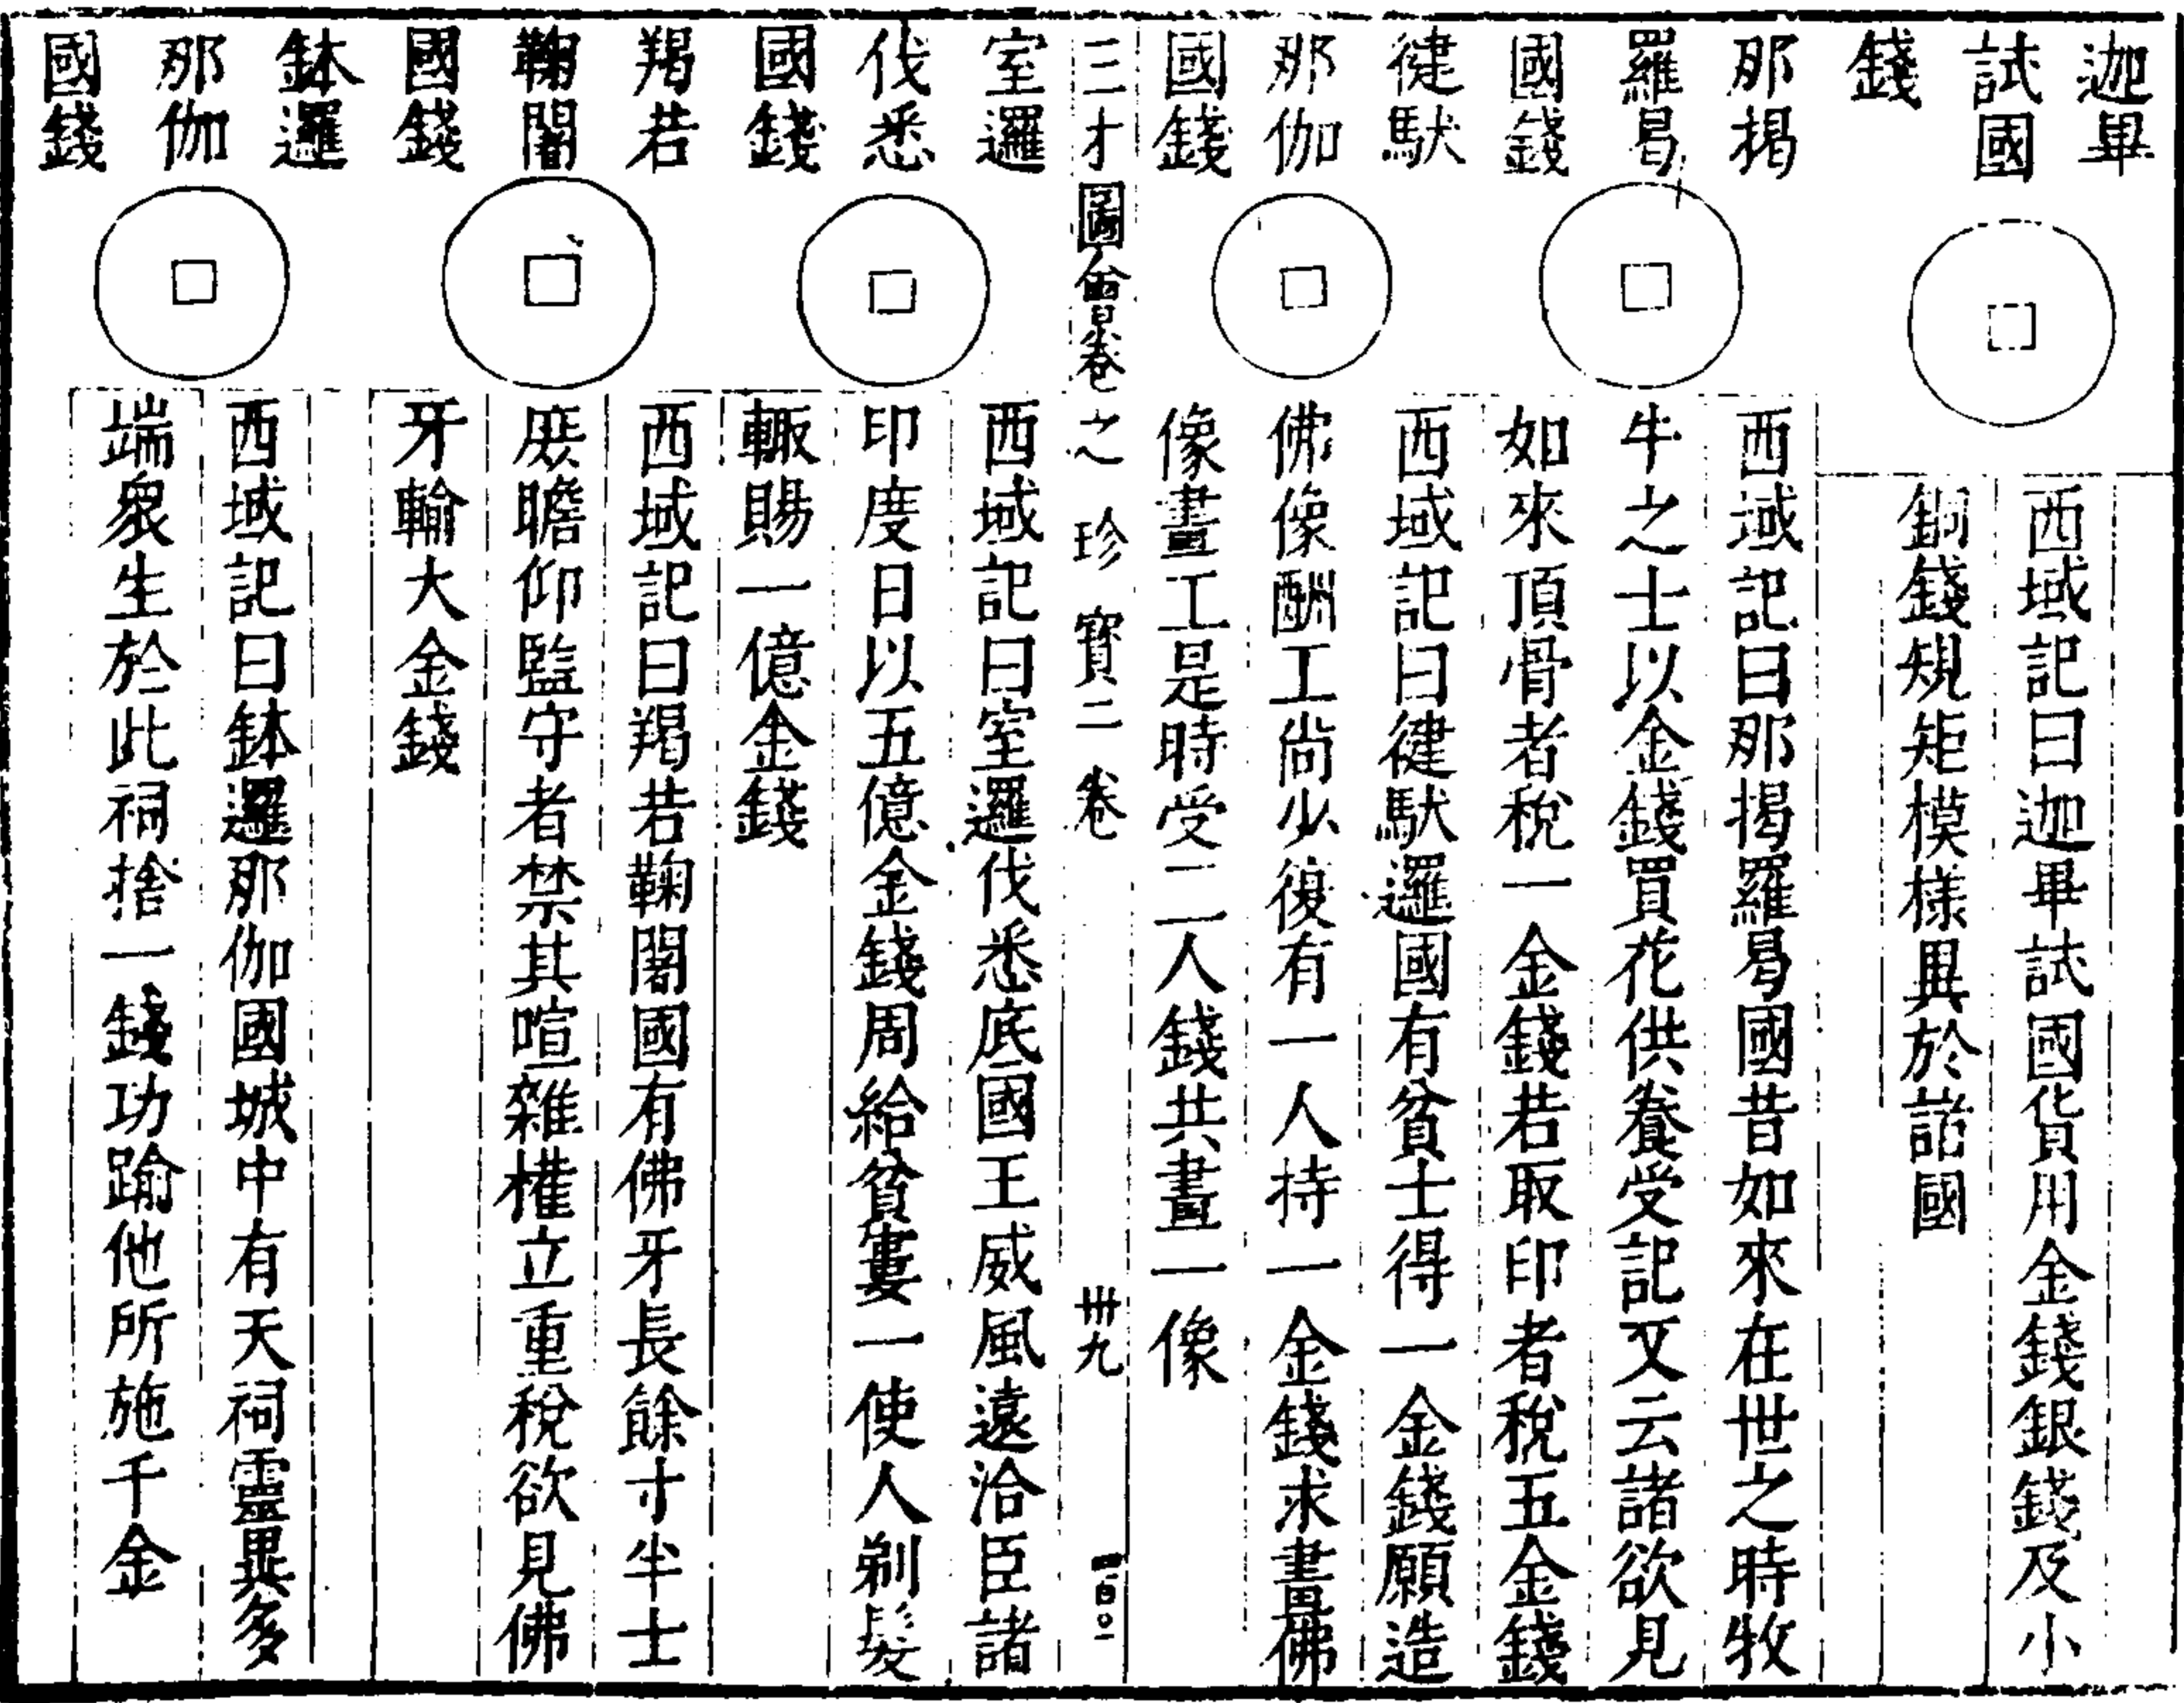 迦畢
試國
錢
西域記曰迦畢試國貨用金錢銀錢及小
銅錢規矩模樣異於諸國
那揭
羅曷
國錢
西域記曰那揭羅曷國昔如來在世之時牧
牛之士以金錢買花供養受記又云諸欲見
如來頂骨者稅一金錢若取印者稅五金錢
徤馱
那伽
國錢
西域記曰徤馱邏國有貧士得一金錢願造
佛像酬工尚少復有一人持一金錢求畫佛
像畫工是時受二人錢共畫一像
三才圖會卷之 珍寶二卷 卌九
室邏
伐悉
國錢
西域記曰室邏伐悉底國王威風遠洽臣諸
印度日以五億金錢周給貧窶一使人剃髮
輙賜一億金錢
羯若
鞠闍
國錢
西域記曰羯若鞠闍國有佛牙長餘寸半士
庶瞻仰監守者禁其喧雜權立重稅欲見佛
牙輸大金錢
鉢邏
那伽
國錢
西域記曰鉢邏那伽國城中有天祠靈異多
端衆生於此祠捨一錢功踰他所施千金